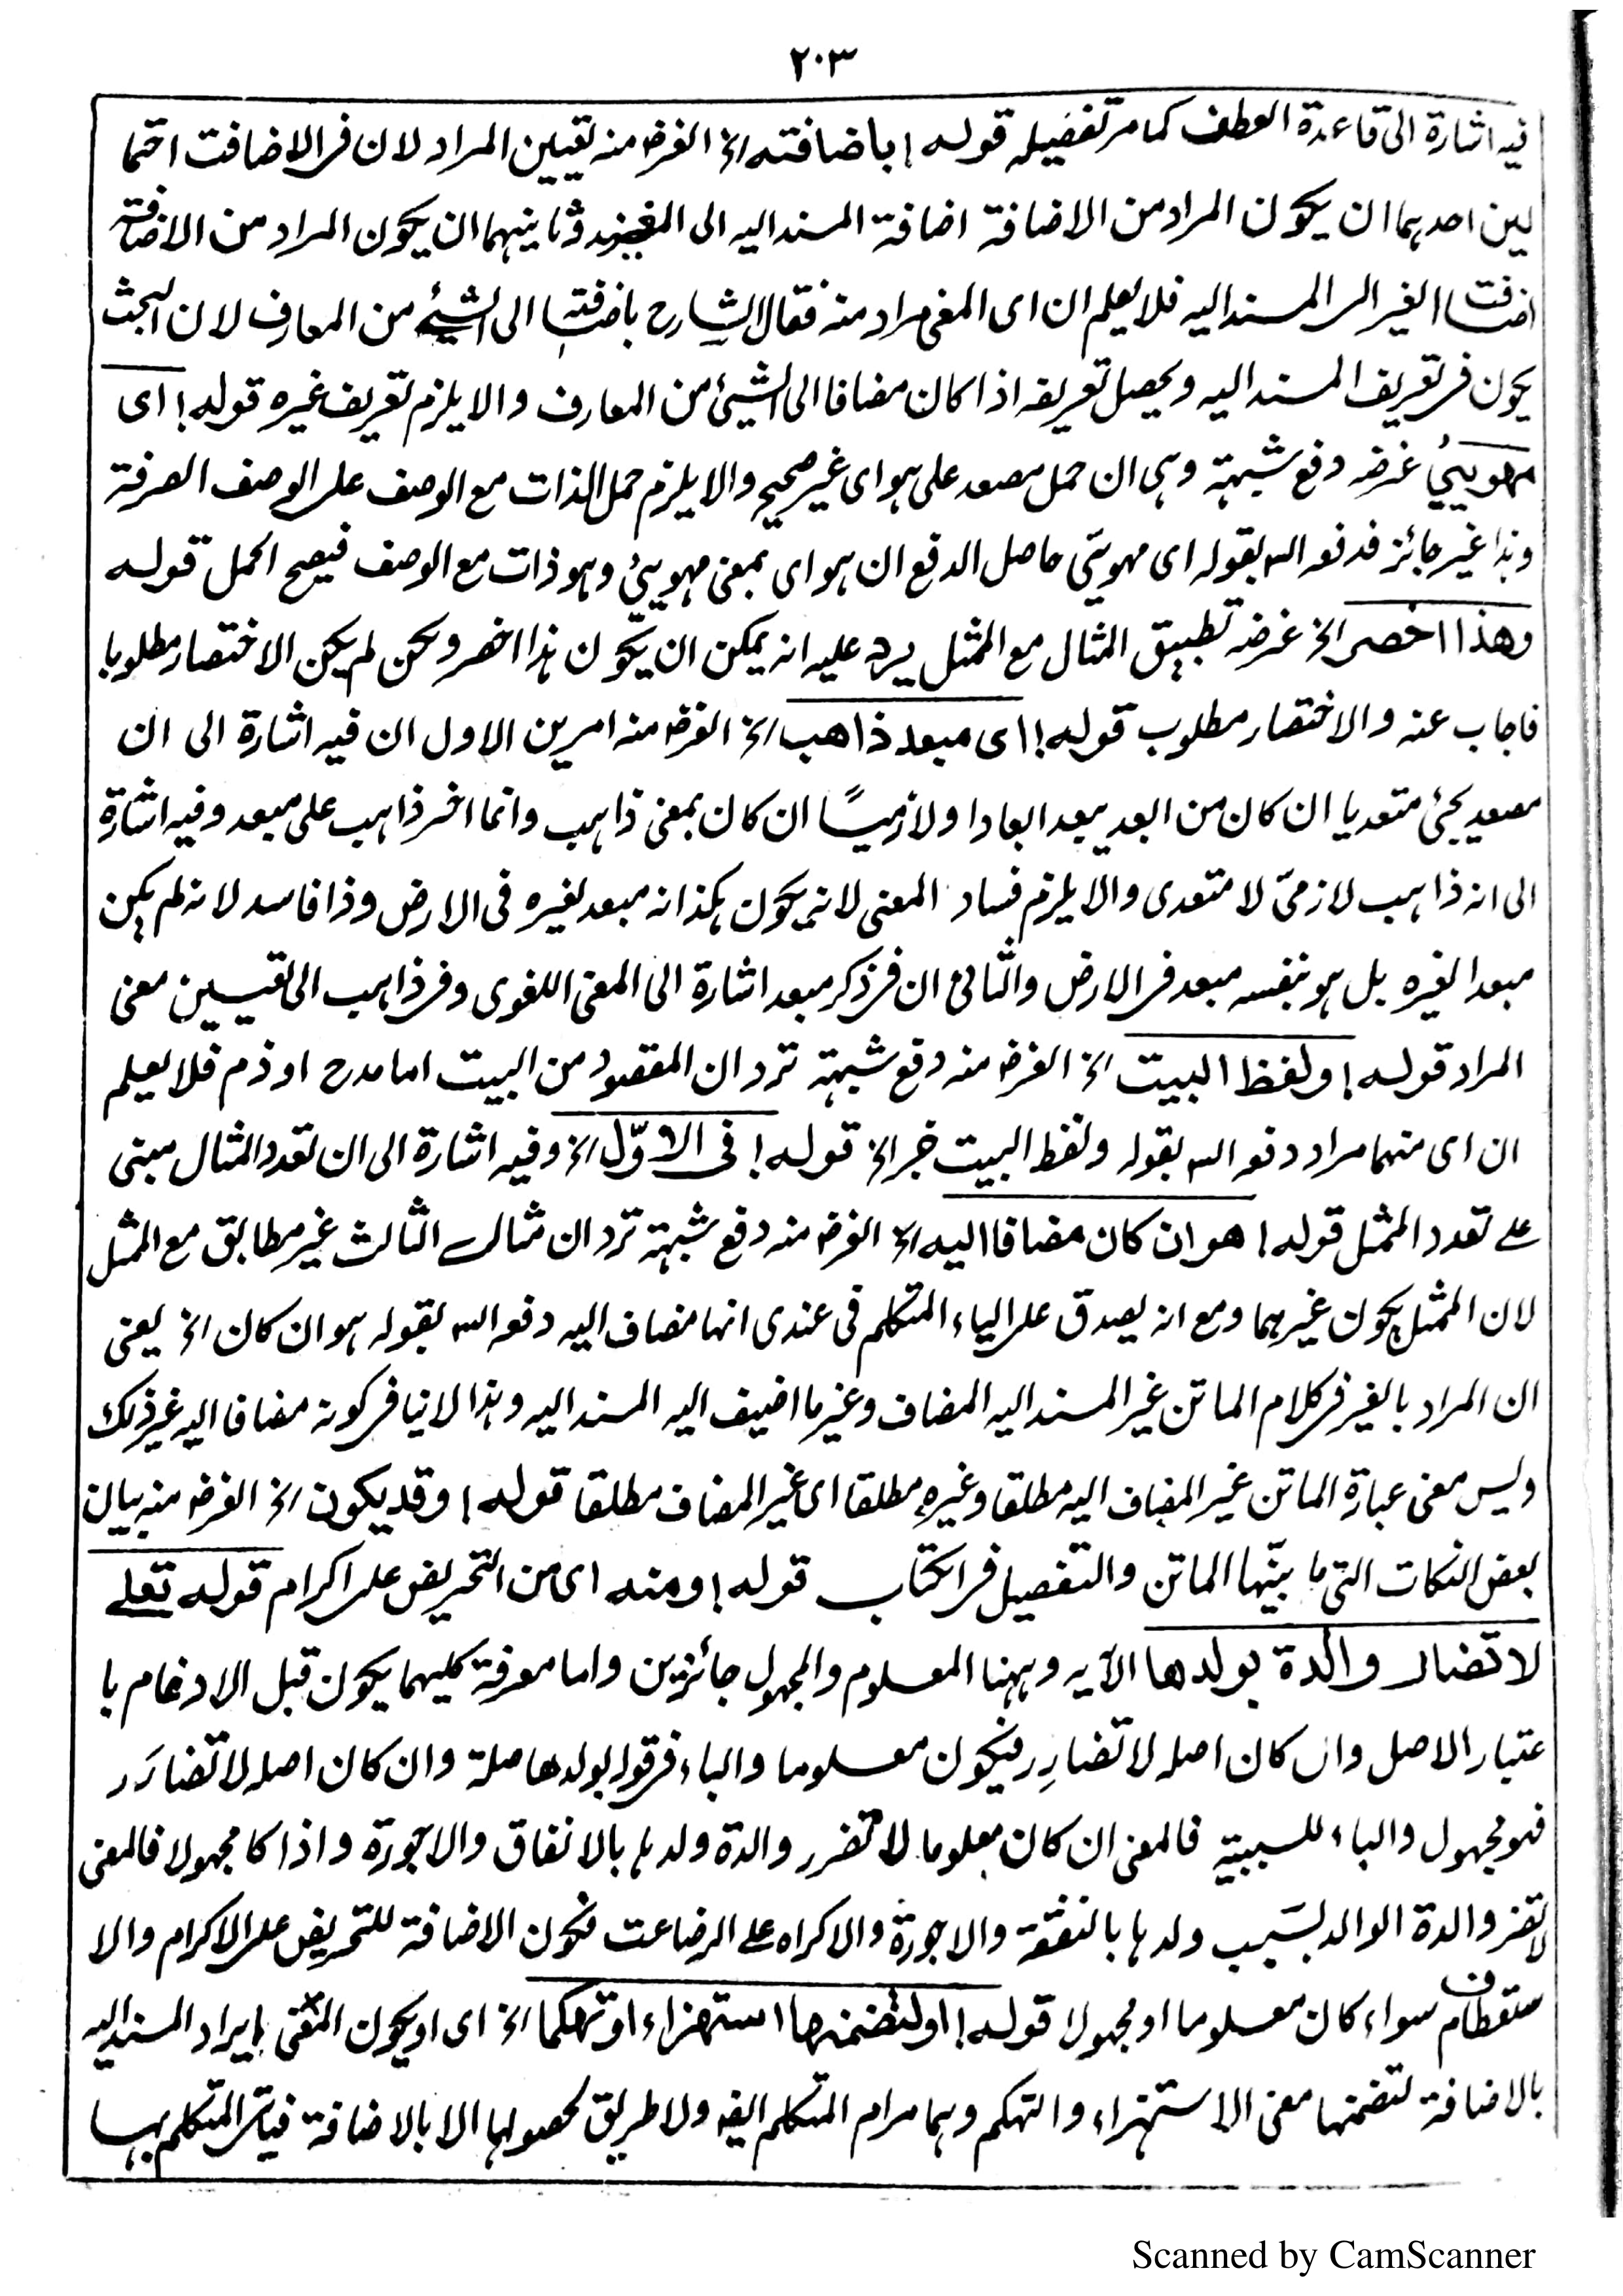 ٢٠٣
فيه اشارة الى قاعدة العطف كما مر تفصيله قوله ! باضافته الخ الغرض منه تعيين المراد لان فى الاضافت احتما
لين احدهما ان يكون المراد من الاضافة اضافة المسند اليه الى الغير وثانيهما ان يكون المراد من الاضافة
اضافت الغير الى المسند اليه فلا يعلم ان اى المعنى مراد منه فقال الشارح باضافته الى الشيئ من المعارف لان البحث
يكون فى تعريف المسند اليه ويحصل تعريفه اذا كان مضافا الى الشيئ من المعارف والا يلزم تعريف غيره قوله ! اى
مهويئ غرضه دفع شبهة وهى ان حمل مصعد على هواى غير صحيح والا يلزم حمل الذات مع الوصف على الوصف الصرفة
وهذا غير جائز فدفعه الشـ بقوله اى مهويئ حاصل الدفع ان هواى بمعنى مهويئ وهو ذات مع الوصف فيصح الحمل قوله
وهذا اخصر الخ غرضه تطبيق المثال مع الممثل يرد عليه انه يمكن ان يكون هذا اخصر ولكن لم يكن الاختصار مطلوبا
فاجاب عنه والاختصار مطلوب قوله ! اى مبعد ذاهب الخ الغرض منه امرين الاول ان فيه اشارة الى ان
مصعد يجئ متعديا ان كان من البعد يبعد ابعادا ولازميًا ان كان بمعنى ذاهب وانما اخر ذاهب على مبعد وفيه اشارة
الى انه ذاهب لازمى لا متعدى والا يلزم فساد المعنى لانه يكون هكذا انه مبعد لغيره فى الارض وذا فاسد لانه لم يكن
مبعدا لغيره بل هو بنفسه مبعد فى الارض والثانى ان فى ذكر مبعد اشارة الى المعنى اللغوى وفى ذاهب الى تعيين معنى
المراد قوله ! ولفظ البيت الخ الغرض منه دفع شبهة ترد ان المقصود من البيت اما مدح او ذم فلا يعلم
ان اى منهما مراد دفعه الشـ بقوله ولفظ البيت خبر الخ قوله ! فى الاوّل الخ وفيه اشارة الى ان تعدد المثال مبنى
على تعدد الممثل قوله ! هو ان كان مضافا اليه الخ الغرض منه دفع شبهة ترد ان مثال الثالث غير مطابق مع الممثل
لان الممثل يكون غيرهما ومع انه يصدق على الياء المتكلم فى عندى انها مضاف اليه دفعه الشـ بقوله هو ان كان الخ يعنى
ان المراد بالغير فى كلام الماتن غير المسند اليه المضاف وغير ما اضيف اليه المسند اليه وهذا لا ينافى كونه مضافا اليه غير ذلك
وليس معنى عبارة الماتن غير المضاف اليه مطلقا وغيره مطلقا اى غير المضاف مطلقا قوله ! وقد يكون الخ الغرض منه بيان
بعض النكات التى ما بيّنها الماتن والتفصيل فى الكتاب قوله ! ومنه اى من التحريض على اكرام قوله تعلى
لا تضار والدة بولدها الآيه وههنا المعلوم والمجهول جائزين واما معرفة كليهما يكون قبل الادغام با
عتبار الاصل وان كان اصله لا تضارِر فيكون معلوما والباء فى قوله بولدها صلة وان كان اصله لا تضارَر
فهو مجهول والباء للسببية فالمعنى ان كان معلوما لا تضرر والدة ولدها بالانفاق والاجورة واذا كا مجهولا فالمعنى
لا تضر والدة الوالد بسبب ولدها بالنفقة والاجورة والاكراه على الرضاعت فكون الاضافة للتحريض على الاكرام والا
ستعطاف سواء كان معلوما او مجهولا قوله ! او لتضمنها استهزاء او تهكما الخ اى او يكون بايراد المسند اليه
بالاضافة لتضمنها معنى الاستهزاء والتهكم وهما مرام المتكلم ايضه ولا طريق لحصولها الا بالاضافة فيأتى المتكلم بها
Scanned by CamScanner